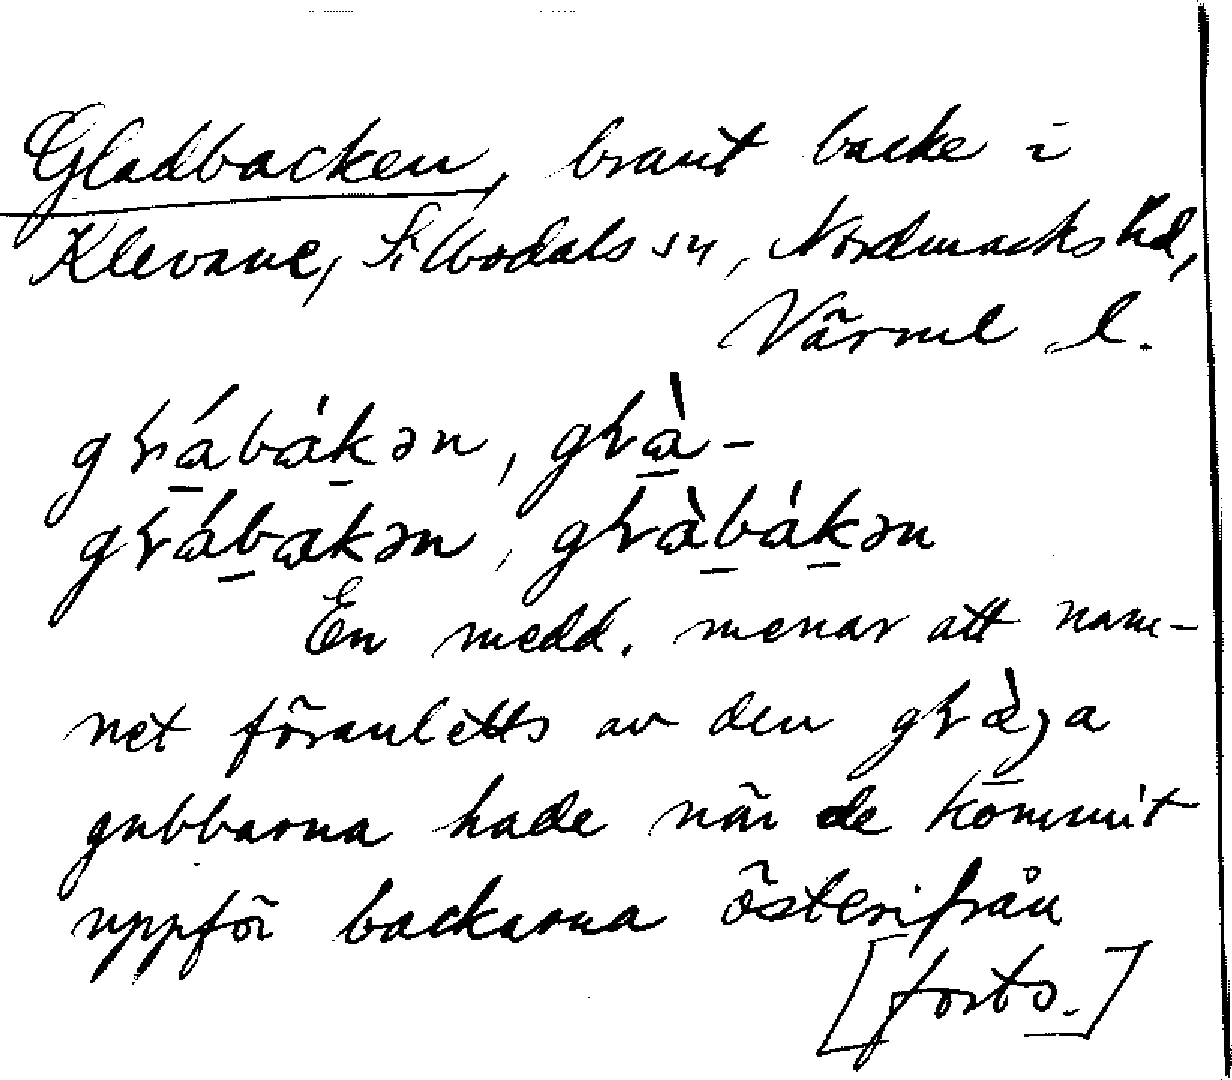 Gladbacken, brant backe i
Klevane, Silbodals sn, Nordmarks hd,
Värml l.
gɽábàkən, gɽà-
gɽábakən, gɽàbákən
En medd. menar att nam-
net föranletts av den
gubbarna hade när de kommit
uppför backarna österifrån
[forts.]